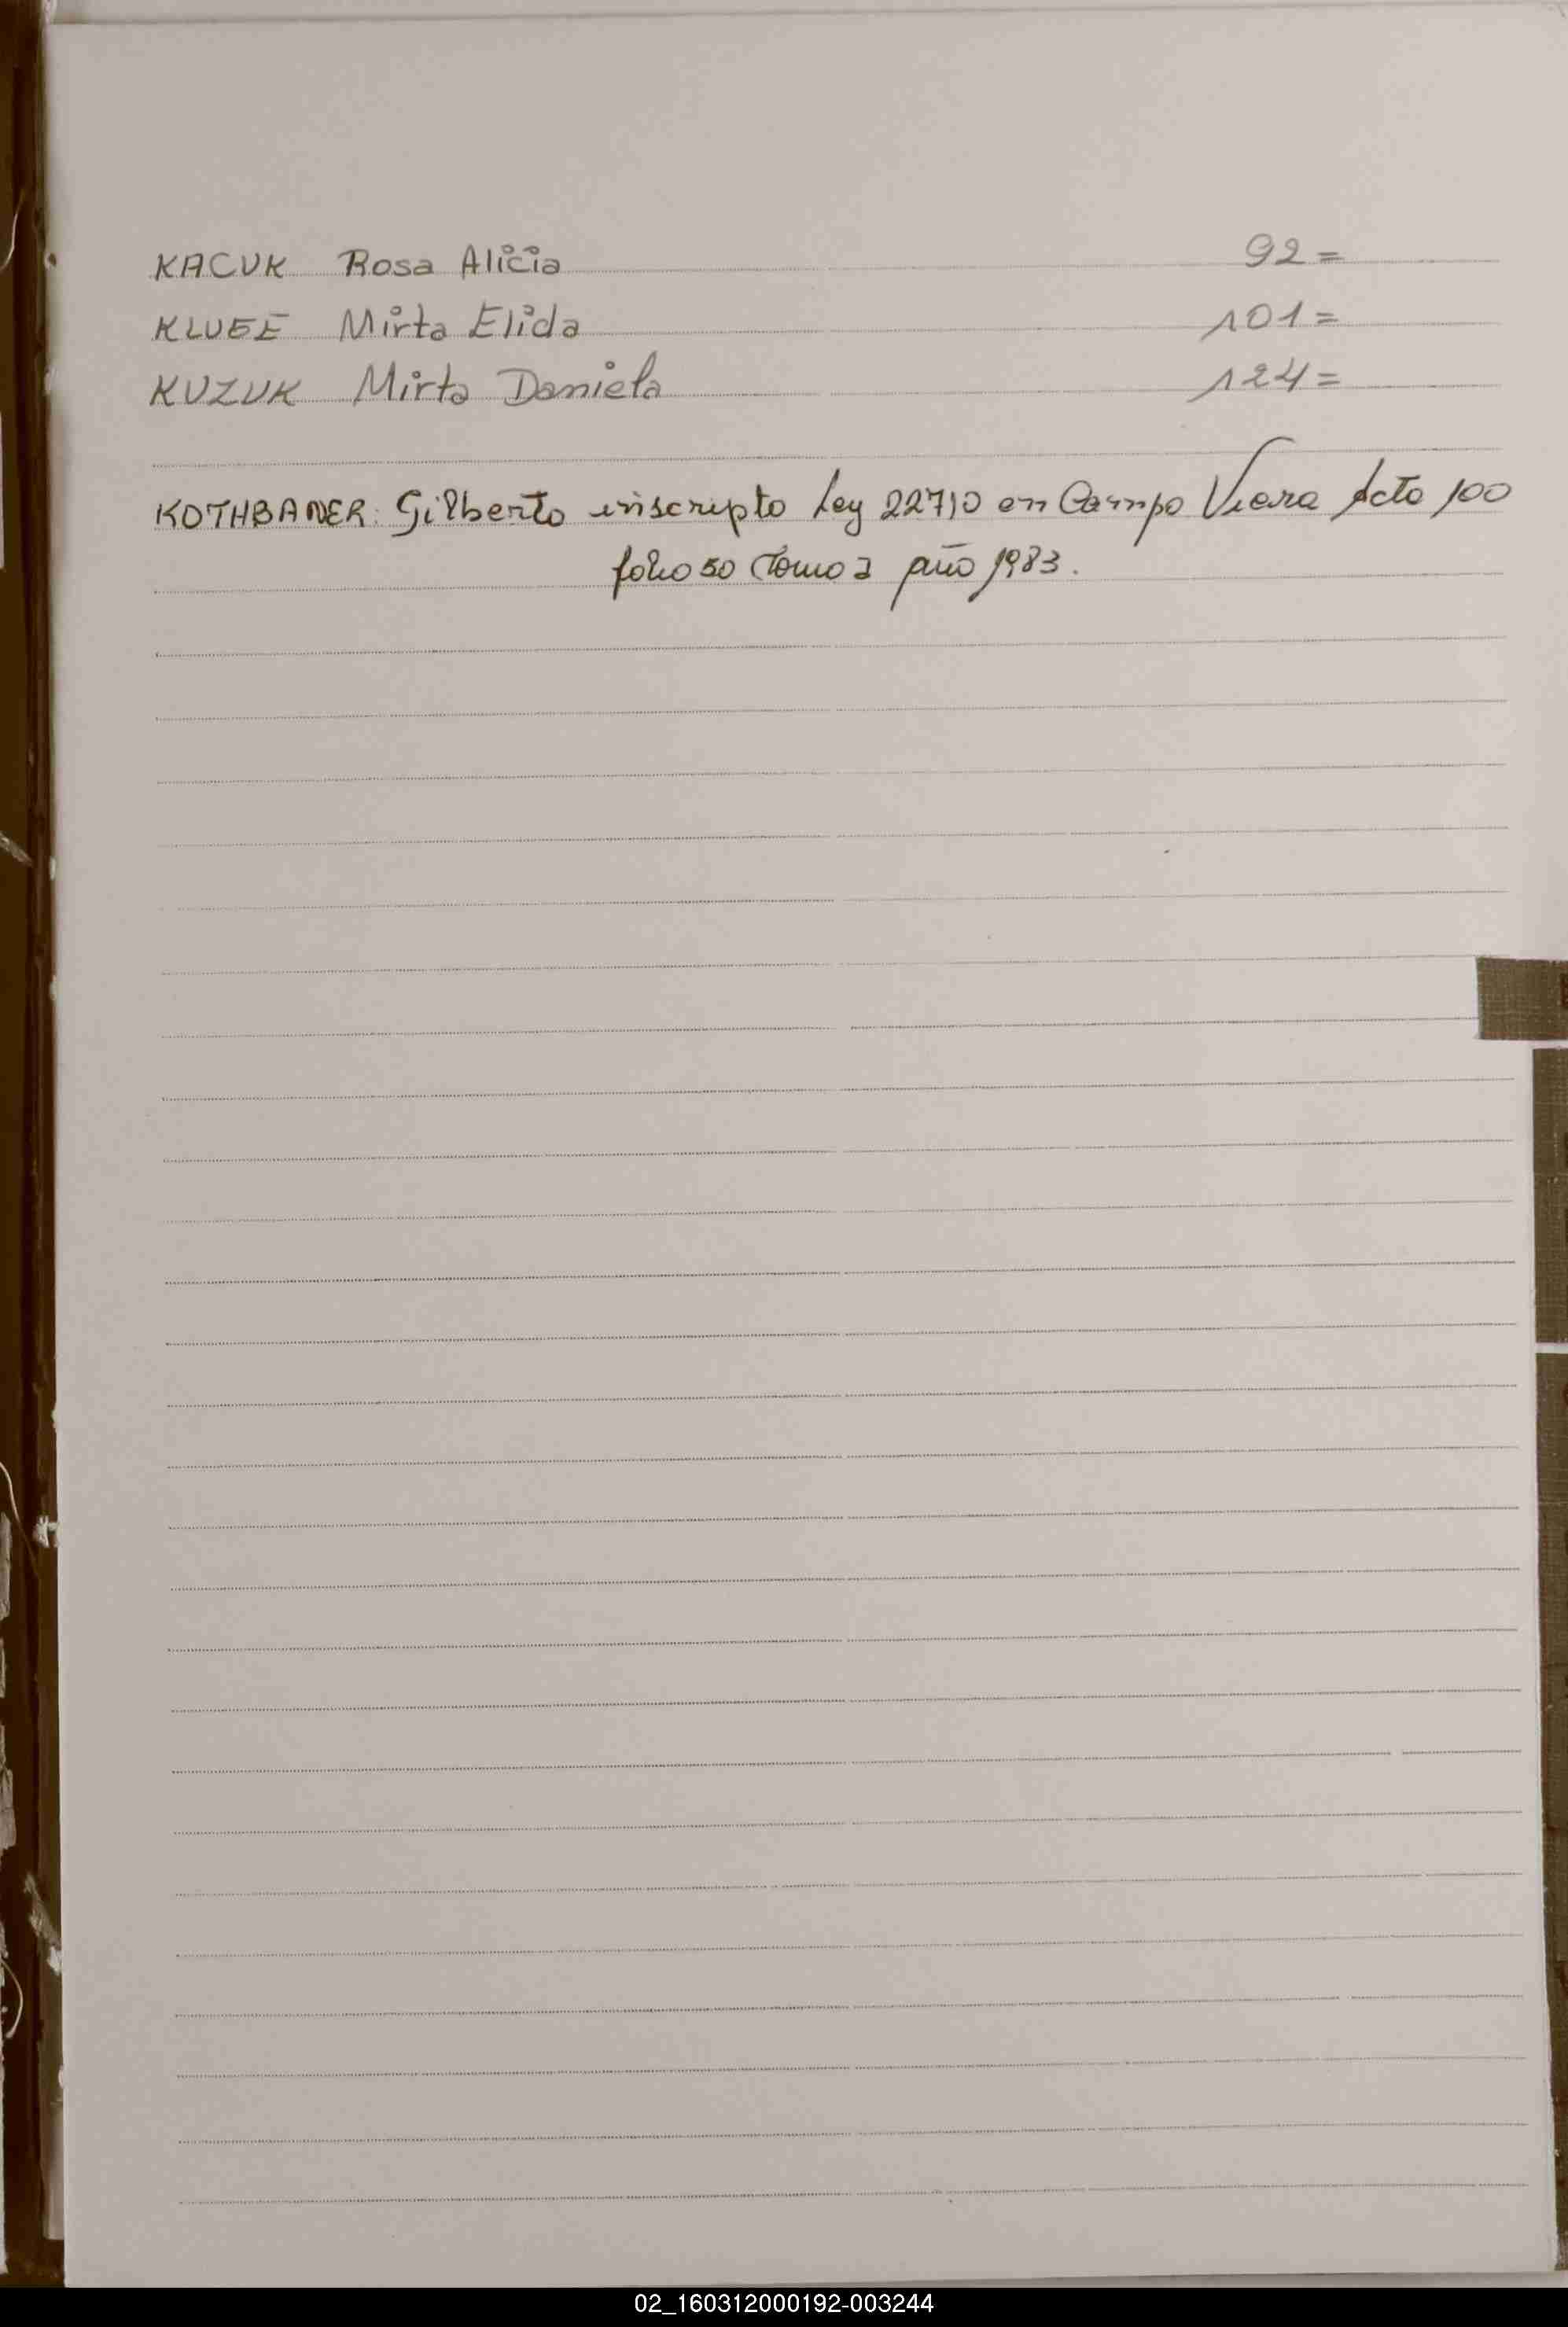 KACUK Rosa Alicia 92=
KLUGE Mirta Elida 101=
KUZUK Mirta Daniela 124=
KOTHBANER: Gilberto inscripto Ley 22710 en Campo Viera Acta 100
folio 50 Tomo 2 año 1983.
02_160312000192-003244